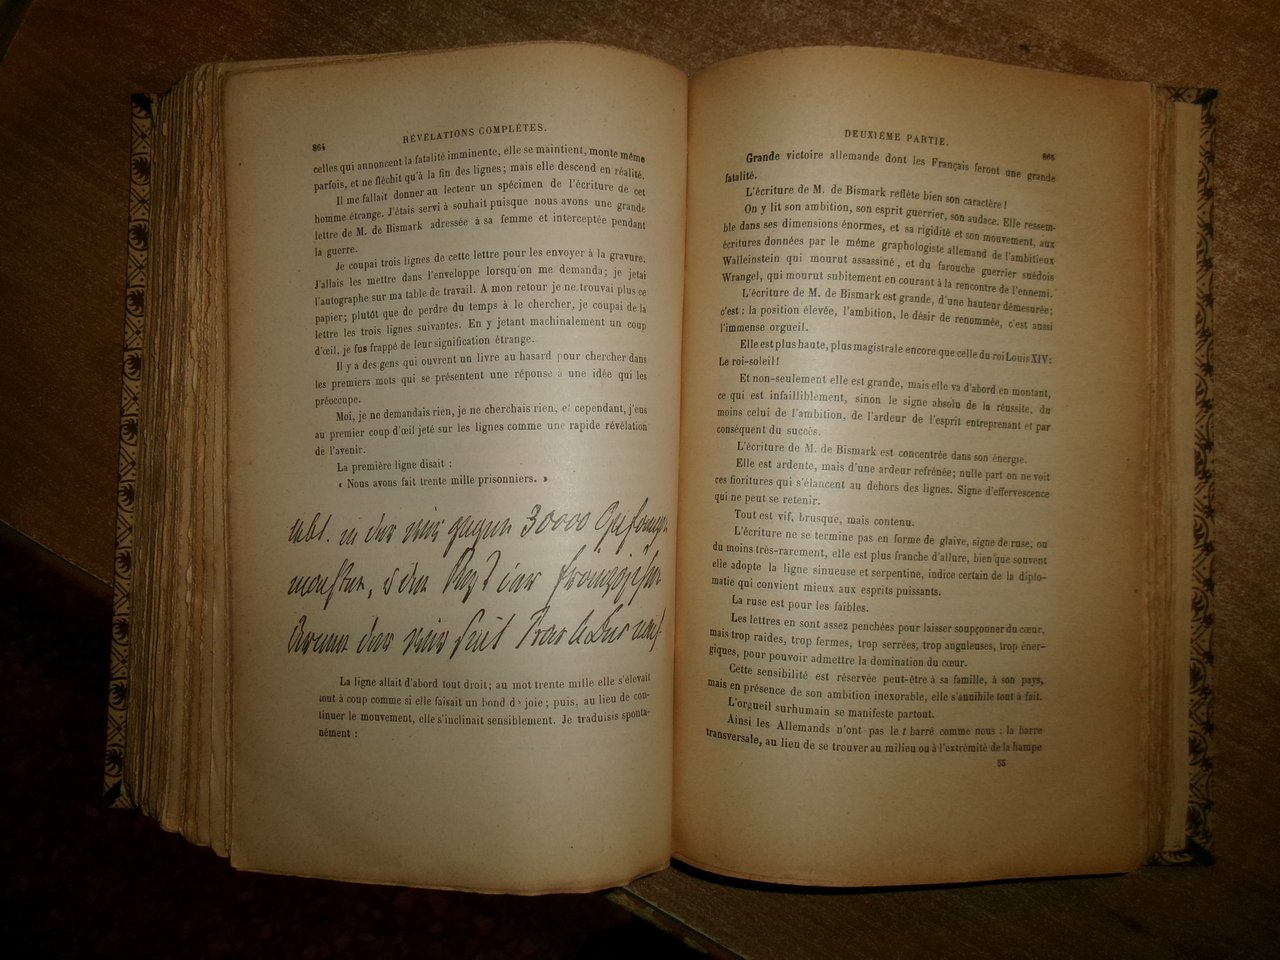 864
RÉVÉLATIONS COMPLÈTES.
celles qui annoncent la fatalité imminente, elle se maintient, monte même
parfois, et ne fléchit qu'à la fin des lignes; mais elle descend en réalité.
Il me fallait donner au lecteur un spécimen de l'écriture de cet
homme étrange. J'étais servi à souhait puisque nous avons une grande
lettre de M. de Bismark adressée à sa femme et interceptée pendant
la guerre.
Je coupai trois lignes de cette lettre pour les envoyer à la gravure.
J'allais les mettre dans l'enveloppe lorsqu'on me demanda; je jetai
l'autographe sur ma table de travail. A mon retour je ne trouvai plus ce
papier; plutôt que de perdre du temps à le chercher, je coupai de la
lettre les trois lignes suivantes. En y jetant machinalement un coup
d'œil, je fus frappé de leur signification étrange.
Il y a des gens qui ouvrent un livre au hasard pour chercher dans
les premiers mots qui se présentent une réponse à une idée qui les
préoccupe.
Moi, je ne demandais rien, je ne cherchais rien, et cependant, j'eus
au premier coup d'œil jeté sur les lignes comme une rapide révélation
de l'avenir.
La première ligne disait :
« Nous avons fait trente mille prisonniers. »
30000
La ligne allait d'abord tout droit; au mot trente mille elle s'élevait
tout à coup comme si elle faisait un bond de joie; puis, au lieu de con-
tinuer le mouvement, elle s'inclinait sensiblement. Je traduisis sponta-
nément :
DEUXIÈME PARTIE.
865
Grande victoire allemande dont les Français feront une grande
fatalité.
L'écriture de M. de Bismark reflète bien son caractère!
On y lit son ambition, son esprit guerrier, son audace. Elle ressem-
ble dans ses dimensions énormes, et sa rigidité et son mouvement, aux
écritures données par le même graphologiste allemand de l'ambitieux
Walleinstein qui mourut assassiné, et du farouche guerrier suédois
Wrangel, qui mourut subitement en courant à la rencontre de l'ennemi.
L'écriture de M. de Bismark est grande, d'une hauteur démesurée;
c'est : la position élevée, l'ambition, le désir de renommée, c'est aussi
l'immense orgueil.
Elle est plus haute, plus magistrale encore que celle du roi Louis XIV:
Le roi-soleil!
Et non-seulement elle est grande, mais elle va d'abord en montant,
ce qui est infailliblement, sinon le signe absolu de la réussite, du
moins celui de l'ambition, de l'ardeur de l'esprit entreprenant et par
conséquent du succès.
L'écriture de M. de Bismark est concentrée dans son énergie.
Elle est ardente, mais d'une ardeur refrénée; nulle part on ne voit
ces fioritures qui s'élancent au dehors des lignes. Signe d'effervescence
qui ne peut se retenir.
Tout est vif, brusque, mais contenu.
L'écriture ne se termine pas en forme de glaive, signe de ruse, ou
du moins très-rarement, elle est plus franche d'allure, bien que souvent
elle adopte la ligne sinueuse et serpentine, indice certain de la diplo-
matie qui convient mieux aux esprits puissants.
La ruse est pour les faibles.
Les lettres en sont assez penchées pour laisser soupçonner du cœur,
mais trop raides, trop fermes, trop serrées, trop anguleuses, trop éner-
giques, pour pouvoir admettre la domination du cœur.
Cette sensibilité est réservée peut-être à sa famille, à son pays,
mais en présence de son ambition inexorable, elle s'annihile tout à fait.
L'orgueil surhumain se manifeste partout.
Ainsi les Allemands n'ont pas le t barré comme nous : la barre
transversale, au lieu de se trouver au milieu ou à l'extrémité de la hampe
55